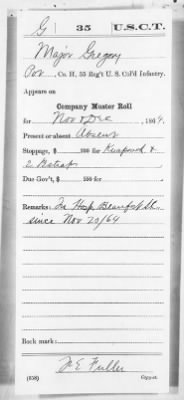 G | 35 | U.S.C.T.
Major Gregory
Pvt, Co. H, 35 Reg't U. S. Col'd Infantry.
Appears on
Company Muster Roll
for Nov & Dec, 1864.
Present or absent Absent
Stoppage, $ 100 for Knapsack &
2 Bstraps
Due Gov't, $ 100 for
Remarks: In Hosp Beaufort S.C.
since Nov 29/64
Book mark:
F E Fuller
(858) Copyist.